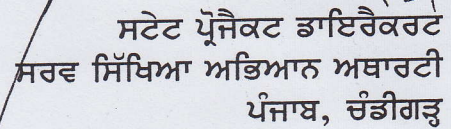 ਸਟੇਟ ਪ੍ਰੋਜੈਕਟ ਡਾਇਰੈਕਰਟ
ਸਰਵ ਸਿੱਖਿਆ ਅਭਿਆਨ ਅਥਾਰਟੀ
ਪੰਜਾਬ, ਚੰਡੀਗੜ੍ਹ